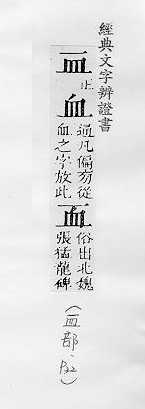 經典文字辨證書
正
血
通凡偏旁從
血之字放此
俗出北魏
張猛龍碑
(血部、P32)